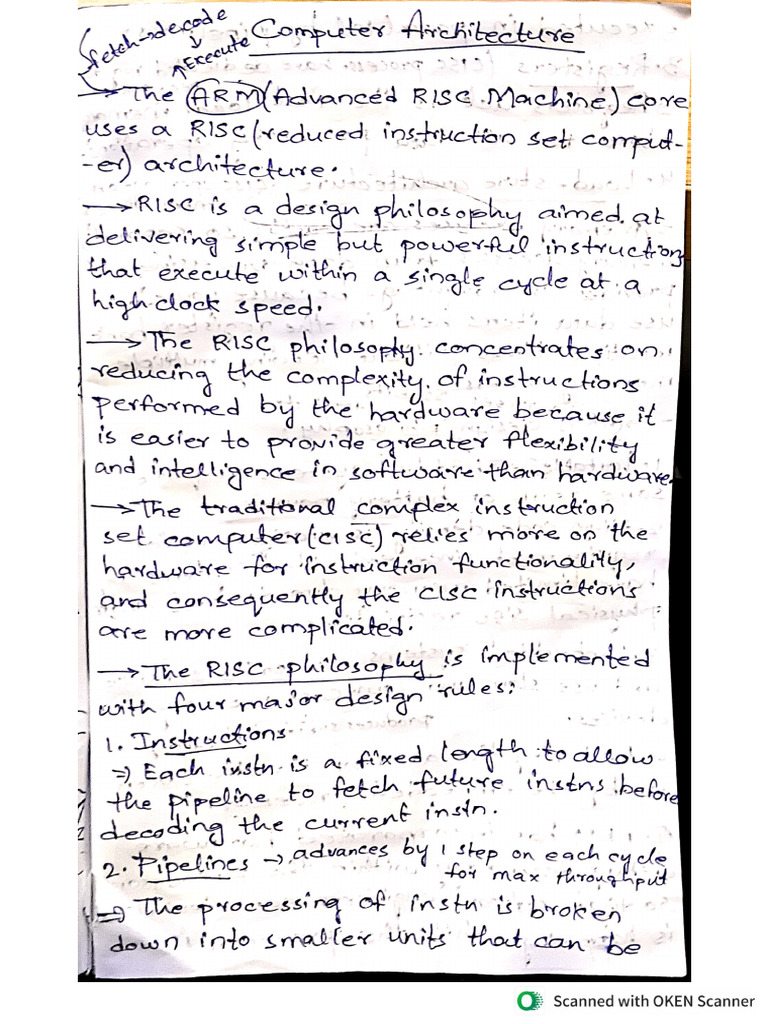 fetch→decode
↓
Execute
Computer Architecture
→ The ARM (Advanced RISC Machine) core
uses a RISC (reduced instruction set comput-
-er) architecture.
→ RISC is a design philosophy aimed at
delivering simple but powerful instructions
that execute within a single cycle at a
high clock speed.
→ The RISC philosophy concentrates on
reducing the complexity of instructions
performed by the hardware because it
is easier to provide greater flexibility
and intelligence in software than hardware.
→ The traditional complex instruction
set computer (CISC) relies more on the
hardware for instruction functionality,
and consequently the CISC instructions
are more complicated.
→ The RISC philosophy is implemented
with four major design rules:
1. Instructions
⇒ Each instn is a fixed length to allow
the pipeline to fetch future instns before
decoding the current instn.
2. Pipelines → advances by 1 step on each cycle
for max throughput
⇒ The processing of instn is broken
down into smaller units that can be
Scanned with OKEN Scanner